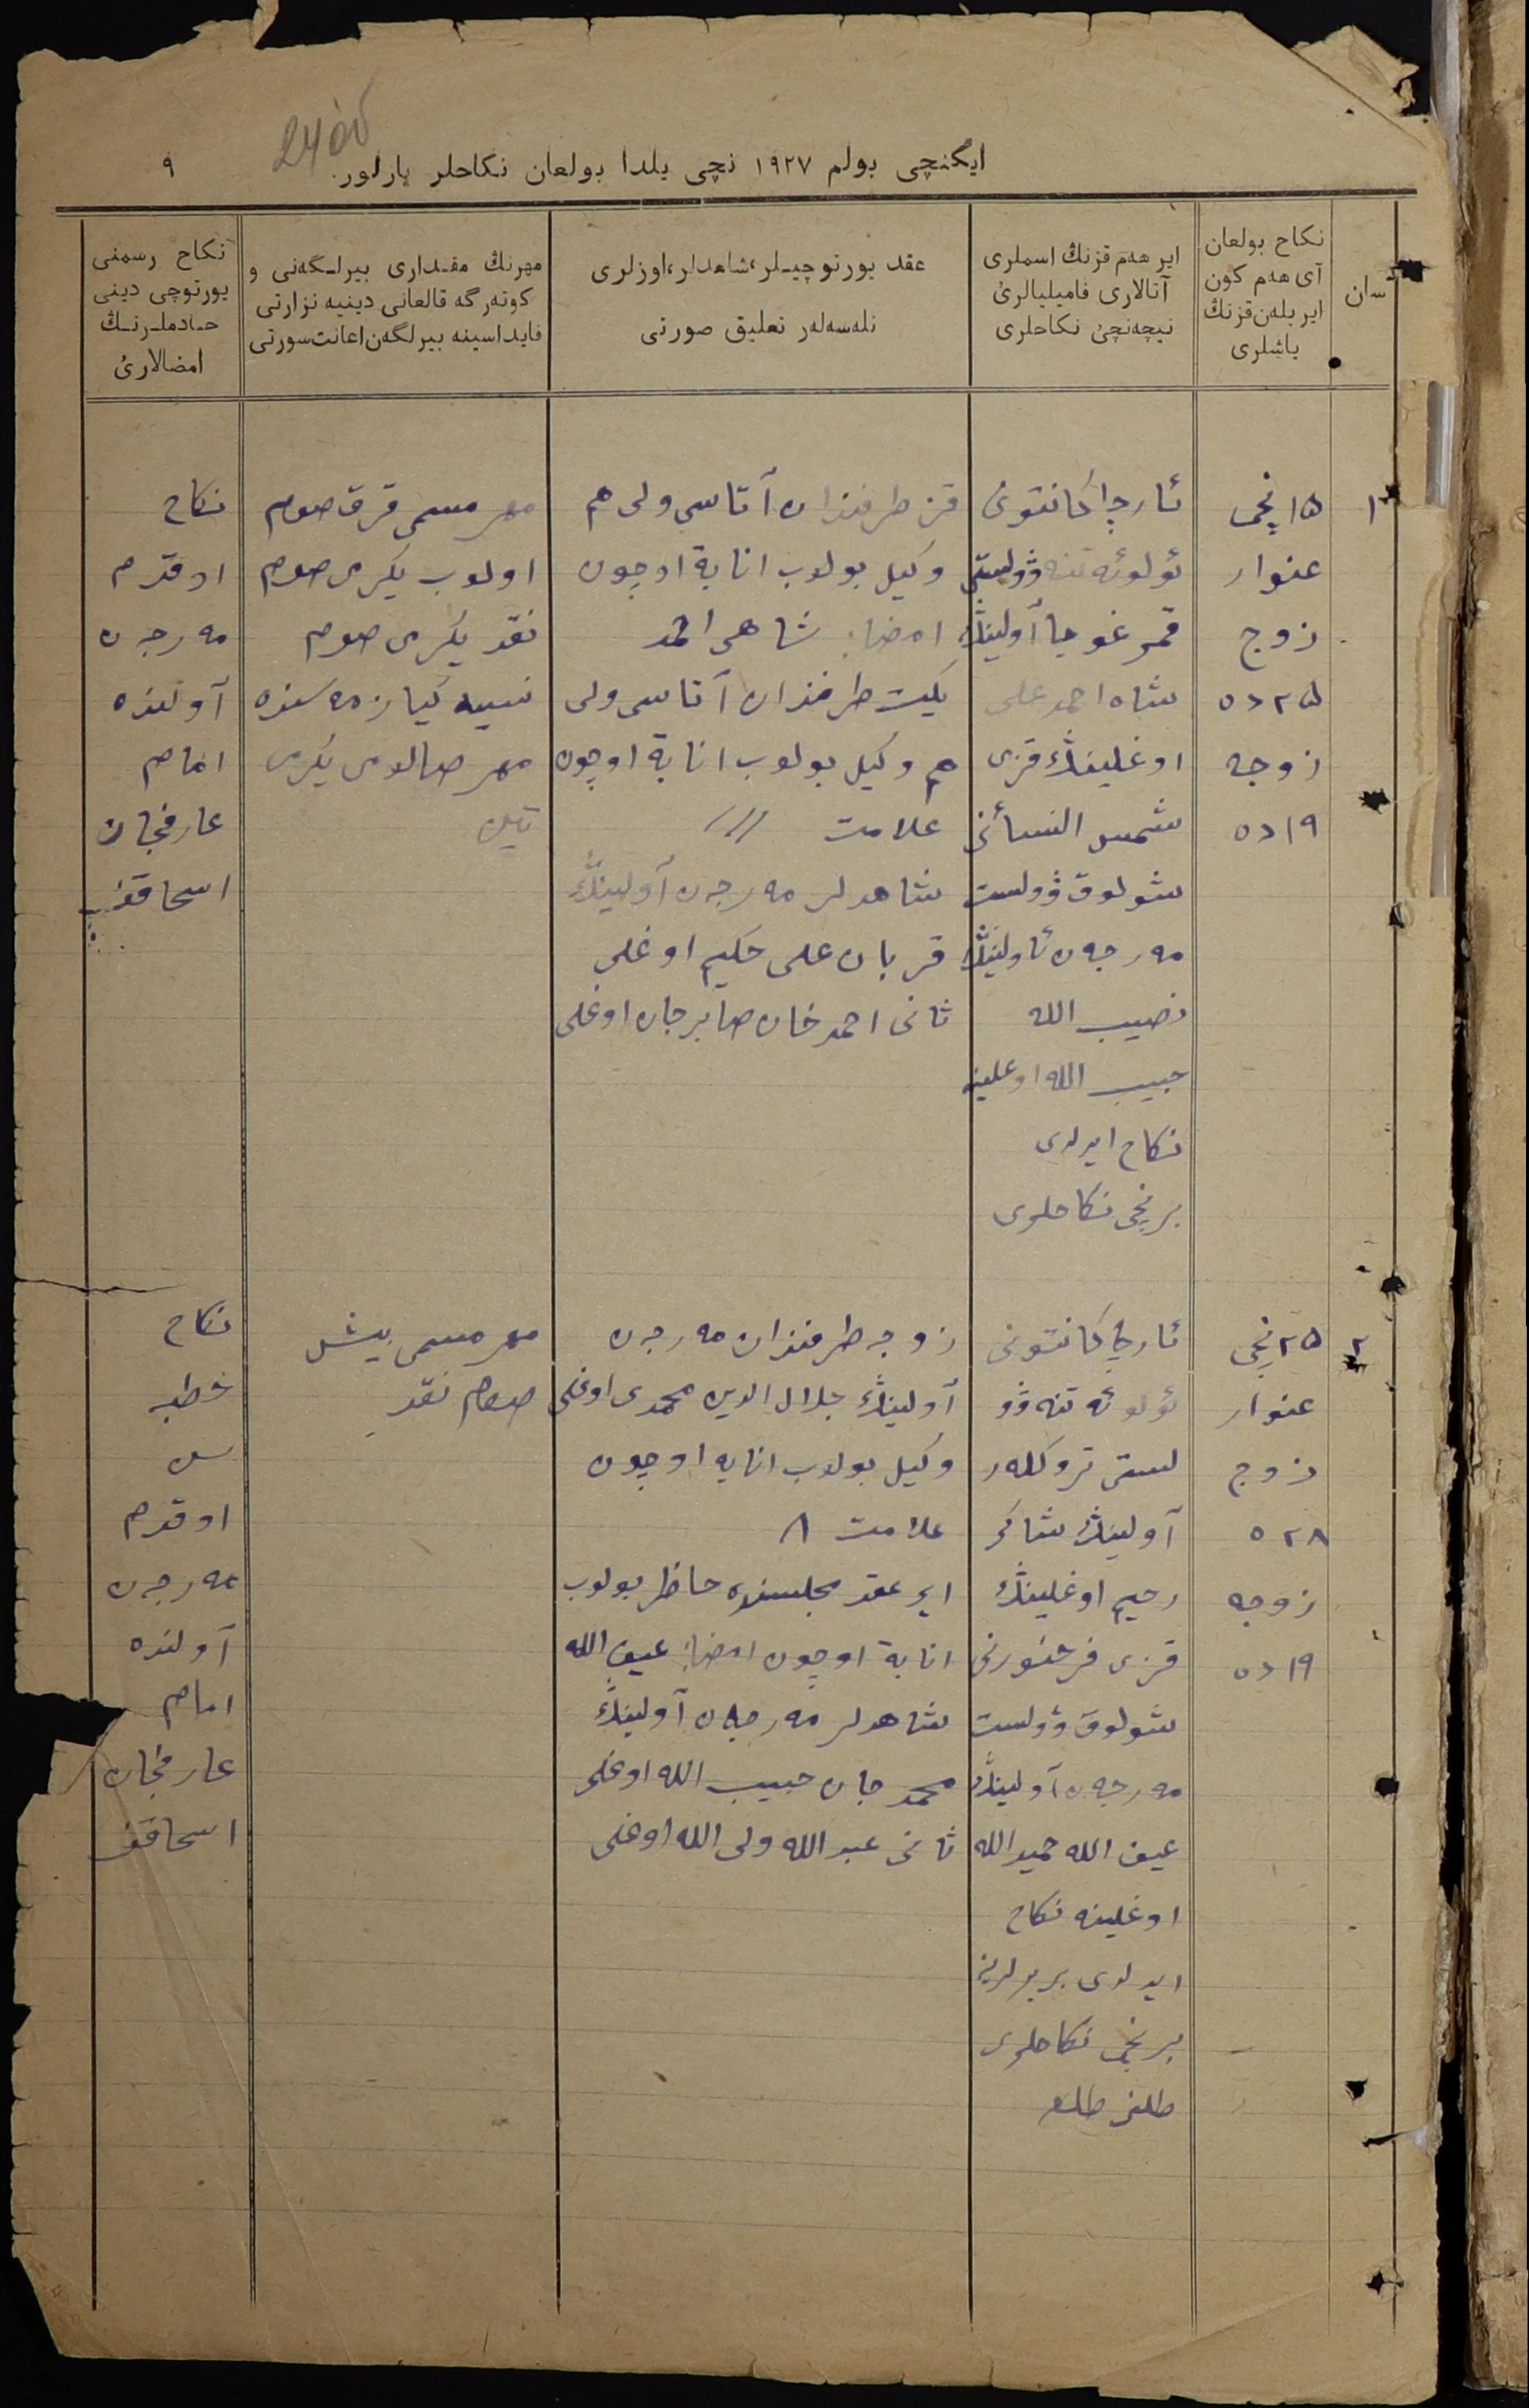 ایگنچی بولم ١٩٢٧ نچی یلدا بولعان نکاحلر یازلور.
٩
سان
نکاح بولعان
آی هەم کون
ایر بلەن قزنڭ
یاشلری
ایر هەم قزنڭ اسملری
آتالاری فامیلیالرئ
نیچەنچئ نکاحلری
عقد یورتوچیلر، شاهدلر، اوزلری
نلەسەلەر تعلیق صورتی
مهرنڭ مقداری بیرلگەنی و
کوتەرگە قالعانی دینیە نزارتی
فایداسینە بیرلگەن اعانت سورتی
نکاح رسمنی
یورتوچی دینی
خادملرنڭ
امضالارئ
١
١٥ نچی
عنوار
زوج
٢٥ دە
زوجە
١٩ دە
ئارچا کانتونی
ئولوئە تنە وۇلستی
قمر غوجا آولینڭ
شاە احمد علی
اوغلینڭ قزی
شمس النسائنی
شولوق وۇلست
مەرجەن ئاولینڭ
نصیب اللە
حبیب اللە اوغلینە
نکاح ایدلدی
برنچی نکاحلری
قز طرفندان آتاسی ولی هم
وکیل بولوب انابة اوچون
امضا: شاهی احمد
یکیت طرفندان آتاسی ولی
هم وکیل بولوب انابة اوچون
علامت ///
شاهدلر مەرجەن آولینڭ
قربان علی حکیم اوغلی
ثانی احمدخان صابرجان اوغلی
مهر مسمی قرق صوم
اولوب یکرمی صوم
نقد یکرمی صوم
نسیە
مهر یکرمی
تین
نکاح
اوقدم
مەرجەن
آولندە
امام
عارفجان
اسحاقف
٢
٢٥ نچی
عنوار
زوج
٢٨ دە
زوجە
١٩ دە
ئارچا کانتونی
ئولوئە تنە وۇ
لستی تروکلەر
آولینڭ شاکر
رحیم اوغلینڭ
قزی فرحنورنی
شولوق وۇلست
مەرجەن آولینڭ
حمید اللە
اوغلینە نکاح
ایدلدی بربرلرینە
برنچی نکاحلری
زوجە طرفندان مەرجەن
آولینڭ جلال الدین محمدی اوغلی
وکیل بولوب انابە اوچون
علامت ٨
ایر عقد مجلسندە حاظر بولوب
انابة اوچون امضا:
شاهدلر مەرجان آولینڭ
محمد جان حبیب اللە اوغلی
ثانی عبد اللە ولی اللە اوغلی
مهر مسمی بیش
صوم نقد
نکاح
خطبە
سن
اوقدم
مەرجەن
آولندە
امام
عارفجان
اسحاقف